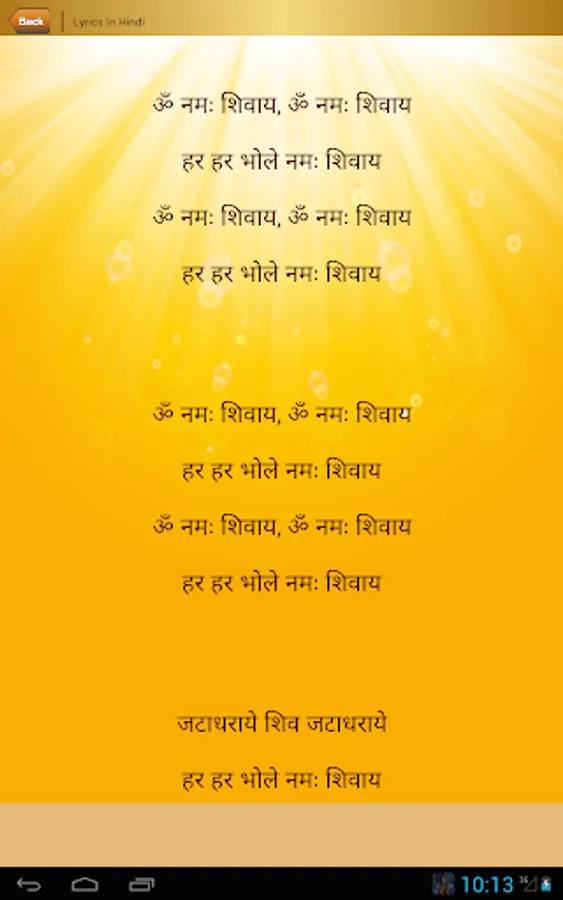 Back
Lyrics In Hindi
ॐ नमः शिवाय, ॐ नमः शिवाय
हर हर भोले नमः शिवाय
ॐ नमः शिवाय, ॐ नमः शिवाय
हर हर भोले नमः शिवाय
ॐ नमः शिवाय, ॐ नमः शिवाय
हर हर भोले नमः शिवाय
ॐ नमः शिवाय, ॐ नमः शिवाय
हर हर भोले नमः शिवाय
जटाधराये शिव जटाधराये
हर हर भोले नमः शिवाय
10:13